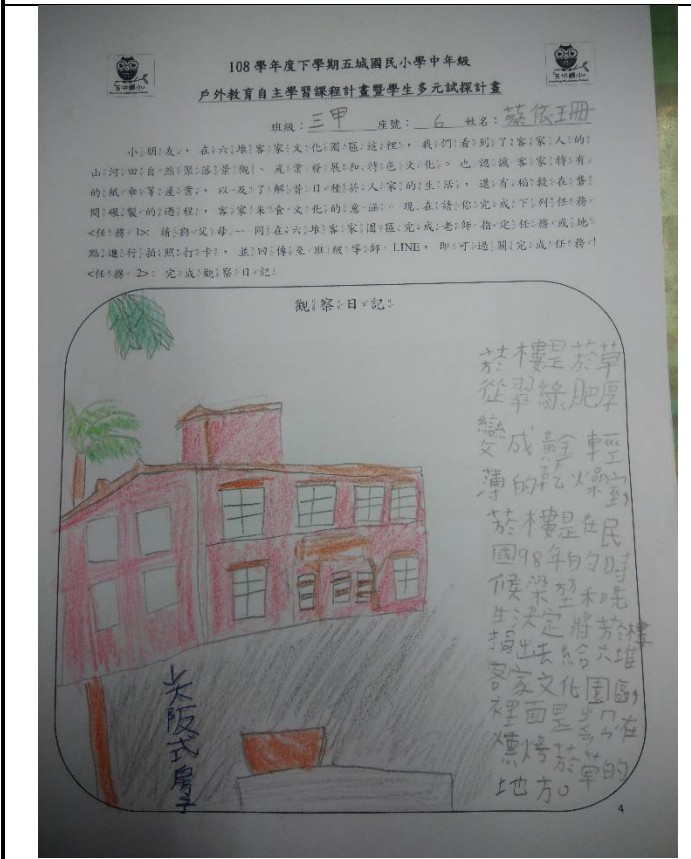 五城國小
五城國小
108 學年度下學期五城國民小學中年級
戶外教育自主學習課程計畫暨學生多元試探計畫
班級：三甲 座號：6 姓名：蔡依珊
小朋友，在六堆客家文化園區這裡，我們看到了客家人的
山河田自然聚落景觀、產業發展和特色文化。也認識客家特有
的紙傘等產業，以及了解昔日種菸人家的生活，還有稻穀在礱
間碾製的過程，客家米食文化的意涵。現在請你完成下列任務
<任務 1>：請與父母一同在六堆客家園區完成老師指定任務或地
點進行拍照打卡，並回傳至班級導師 LINE，即可過關完成任務！
<任務 2>：完成觀察日記
觀察日記
菸樓是菸草
從翠綠肥厚
變成黃金輕
薄的乾燥室，
菸樓是在民
國98年的時
候梁 和 先
生決定將菸樓
捐出去給六堆
客家文化園區，
裡面是ㄉㄤ在
燻烤菸草的
地方。
大阪式房子
4